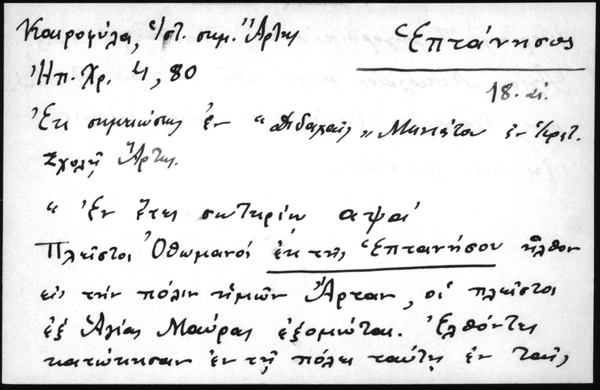 Καιροφύλα, ἱστ. σημ. Ἄρτης
Ἑπτάνησος
Ἠπ. Χρ. 4, 80
18. αἰ.
Ἐκ σημειώσεως ἐν "Διδαχαῖς" Μηνιάτου ἐν
Σχολῇ Ἄρτης.
" Ἐν ἔτει σωτηρίῳ αψαί
Πλεῖστοι Ὀθωμανοί ἐκ τῆς Ἑπτανήσου ἦλθον
εἰς τήν πόλιν ἡμῶν Ἄρταν, οἱ πλεῖστοι
ἐξ Ἁγίας Μαύρας ἐξομῶται. Ἐλθόντες
κατῴκησαν ἐν τῇ πόλει ταύτῃ ἐν ταῖς